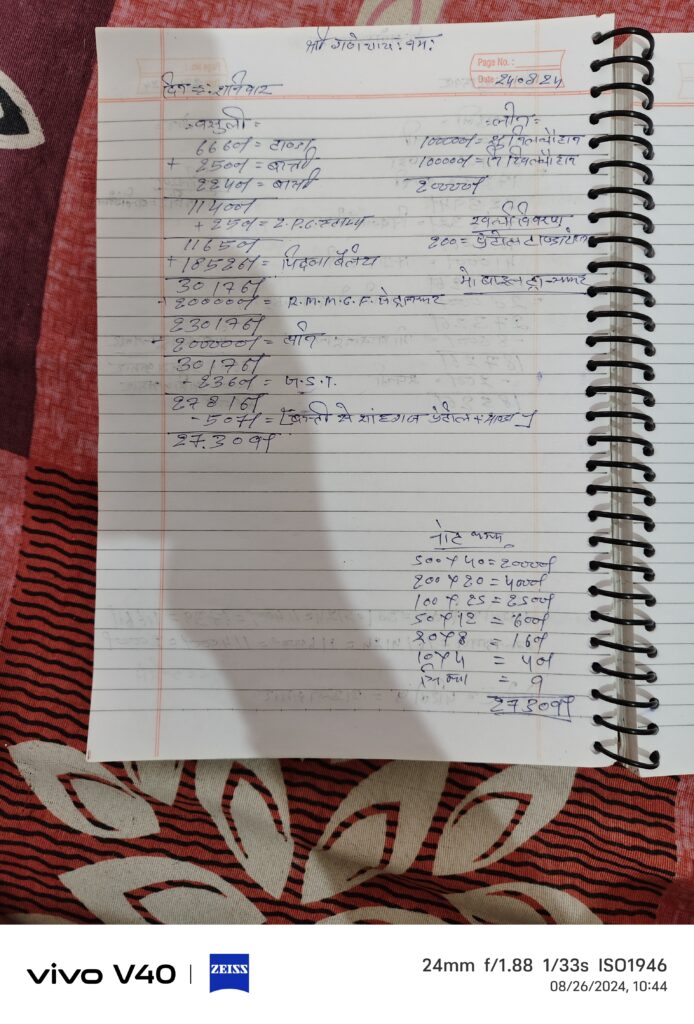 श्री गणेशाय: नम:
Page No. :
Date 24.08.24
दिनांक: शनिवार
: वसुली :
6660/ = टाण्डा
+ 2500/ = बस्ती
2240/ = बासी
11400/
+ 250/ = 2. P.C.
11650/
+ 18526/ = पिछला बैलेंस
30176/
+ 200000/ = R.M.M.G.F.
230176/
- 200000/ = लोन
30176/
- 2360/ = G.S.T.
27816/
- 507/ = [बस्ती से पेट्रोल + ]
27309/
: लोन :
100000/ =
100000/ =
200000/
खर्चा विवरण
200 = पेट्रोल टाण्डा
नोट
500 × 40 = 20000/
200 × 20 = 4000/
100 × 25 = 2500/
50 × 12 = 600/
20 × 8 = 160/
10 × 4 = 40/
सिक्का = 9
27309/
vivo V40
ZEISS
24mm f/1.88 1/33s ISO1946
08/26/2024, 10:44